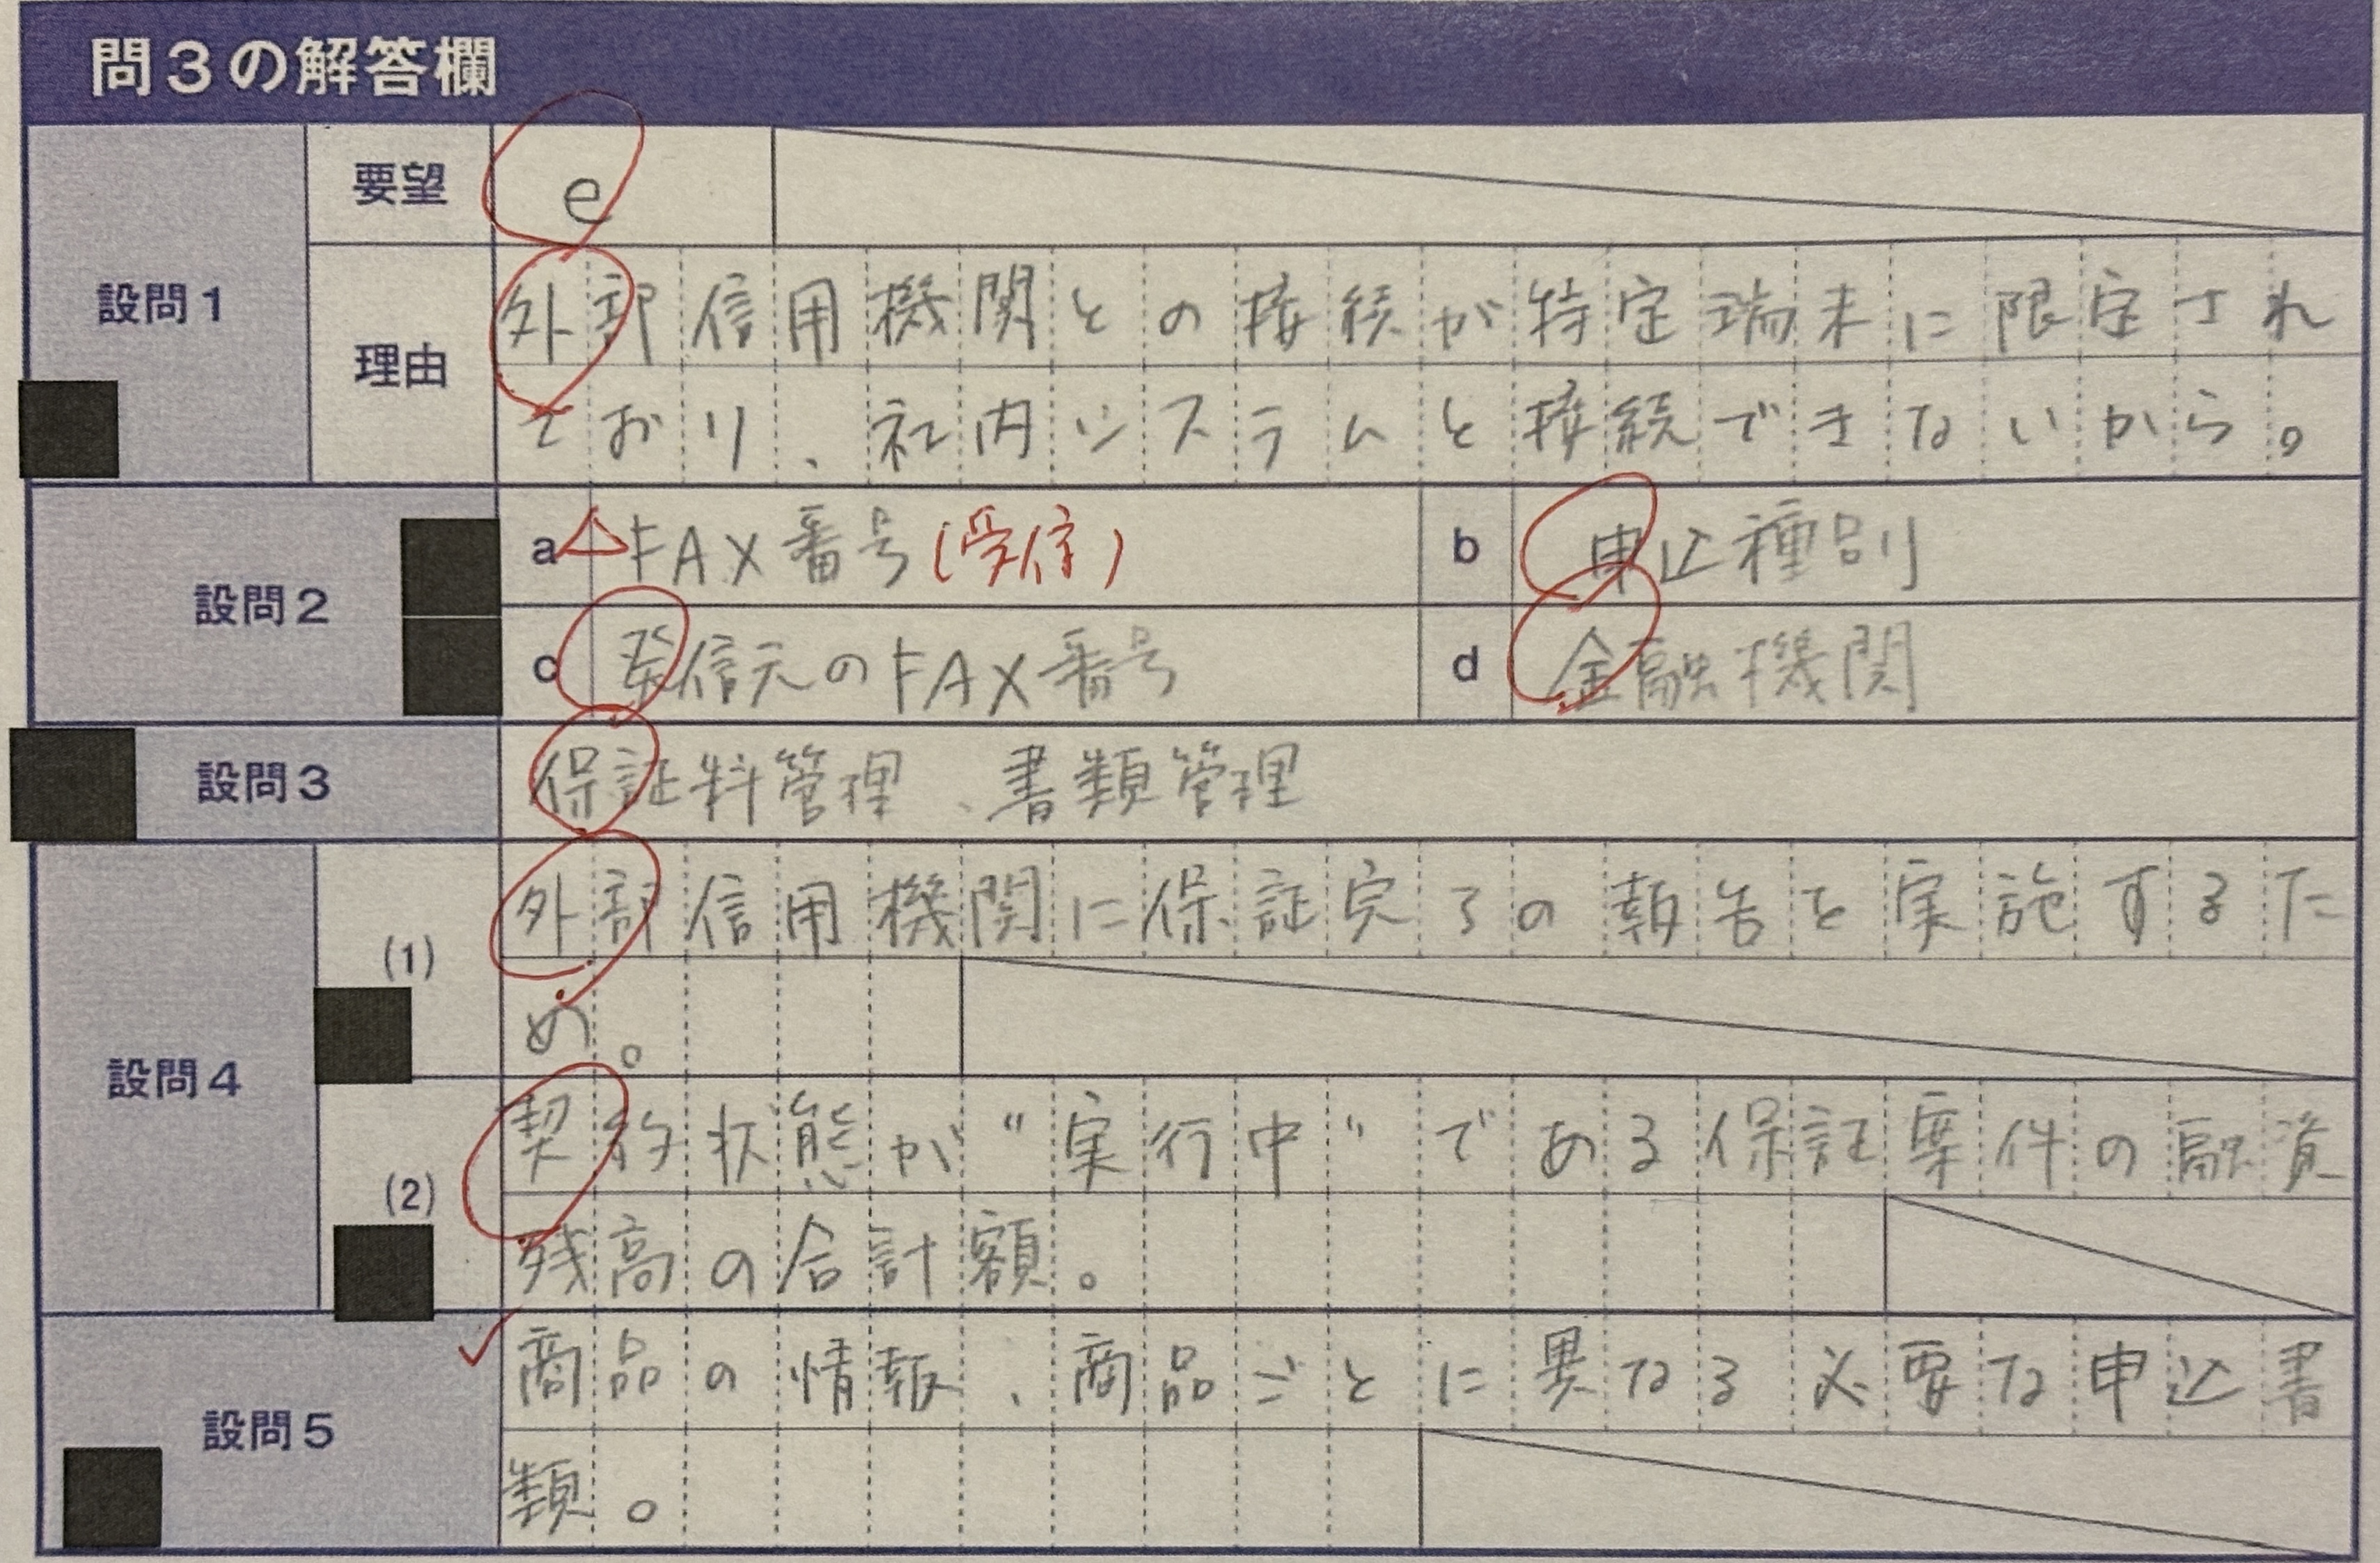 問3の解答欄
設問1
要望
e
理由
外部信用機関との接続が特定端末に限定され
ており、社内システムと接続できないから。
設問2
a FAX番号(受信)
b 申込種別
c 発信元のFAX番号
d 金融機関
設問3
保証料管理、書類管理
設問4
(1)
外部信用機関に保証完了の報告を実施するた
め。
(2)
契約状態が"実行中"である保証案件の融資
残高の合計額。
設問5
商品の情報、商品ごとに異なる必要な申込書
類。